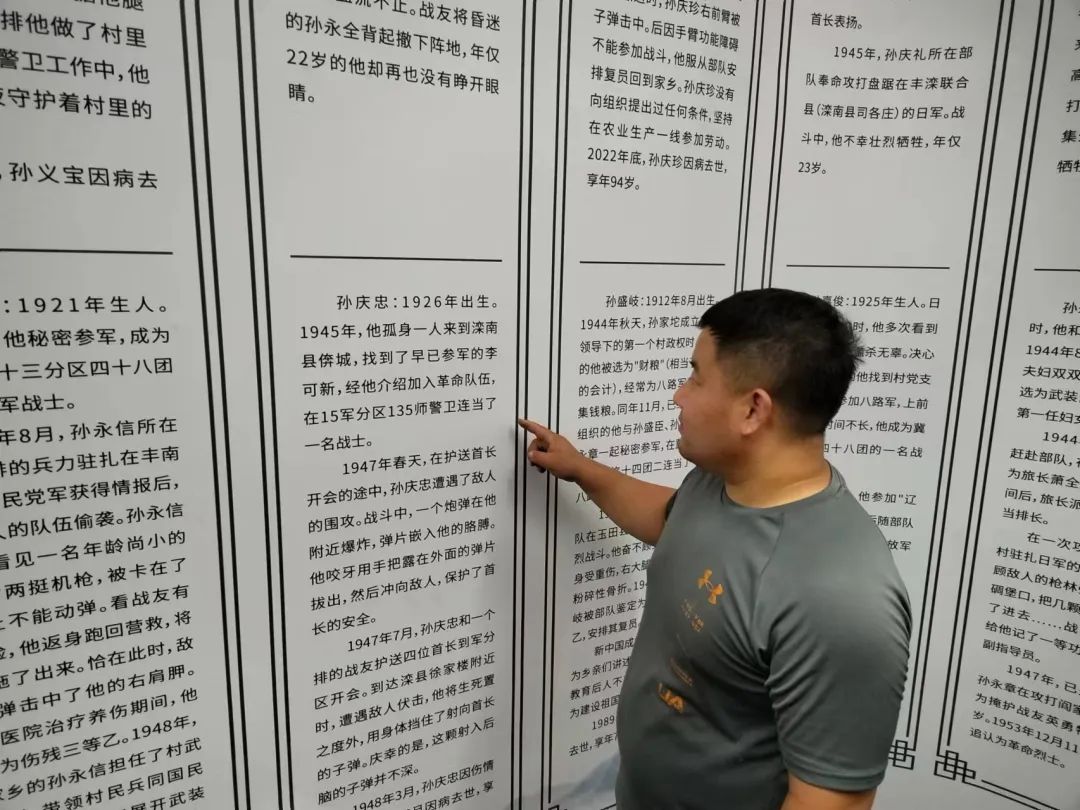 排他做了村里
警卫工作中,他
守护着村里的
孙义宝因病去
:1921年生人。
他秘密参军,成为
十三分区四十八团
军战士。
年8月,孙永信所在
排的兵力驻扎在丰南
民党军获得情报后,
人的队伍偷袭。孙永信
看见一名年龄尚小的
两挺机枪,被卡在了
不能动弹。看战友有
他返身跑回营救,将
了出来。恰在此时,敌
弹击中了他的右肩胛。
医院治疗养伤期间,他
为伤残三等乙。1948年,
乡的孙永信担任了村武
带领村民兵同国民
展开武装
不止。战友将昏迷
的孙永全背起撤下阵地,年仅
22岁的他却再也没有睁开眼
睛。
孙庆忠:1926年出生。
1945年,他孤身一人来到滦南
县倴城,找到了早已参军的李
可新,经他介绍加入革命队伍,
在15军分区135师警卫连当了
一名战士。
1947年春天,在护送首长
开会的途中,孙庆忠遭遇了敌人
的围攻。战斗中,一个炮弹在他
附近爆炸,弹片嵌入他的胳膊。
他咬牙用手把露在外面的弹片
拔出,然后冲向敌人,保护了首
长的安全。
1947年7月,孙庆忠和一个
排的战友护送四位首长到军分
区开会。到达滦县徐家楼附近
时,遭遇敌人伏击,他将生死置
之度外,用身体挡住了射向首长
的子弹。庆幸的是,这颗射入后
脑的子弹并不深。
1948年3月,孙庆忠因伤情
月因病去世,享
孙庆珍右前臂被
子弹击中。后因手臂功能障碍
不能参加战斗,他服从部队安
排复员回到家乡。孙庆珍没有
向组织提出过任何条件,坚持
在农业生产一线参加劳动。
2022年底,孙庆珍因病去世,
享年94岁。
孙盛岐:1912年8月出生。
1944年秋天,孙家坨成立
领导下的第一个村政权时
的他被选为“财粮”(相当
的会计),经常为八路军
集钱粮。同年11月,已
组织的他与孙盛臣、孙
永章一起秘密参军,在
十四团二连当了
队在玉田县
烈战斗。他奋不顾
身受重伤,右大腿
粉碎性骨折。19
岐被部队鉴定为
乙,安排其复员。
新中国成
为乡亲们讲述
教育后人不
为建设祖国
1989
去世,享年
首长表扬。
1945年,孙庆礼所在部
队奉命攻打盘踞在丰滦联合
县(滦南县司各庄)的日军。战
斗中,他不幸壮烈牺牲,年仅
23岁。
俊:1925年生人。日
时,他多次看到
杀无辜。决心
他找到村党支
参加八路军,上前
时间不长,他成为冀
四十八团的一名战
他参加“辽
后随部队
放军
打
集
牺牲
孙
时,他和
1944年8
夫妇双双
选为武装
第一任妇
1944
赶赴部队,
为旅长萧全
间后,旅长派
当排长。
在一次攻
村驻扎日军的
顾敌人的枪林
碉堡口,把几颗
了进去……战
给他记了一等功
副指导员。
1947年,已
孙永章在攻打阎家
为掩护战友英勇牺
岁。1953年12月11
追认为革命烈士。
UA